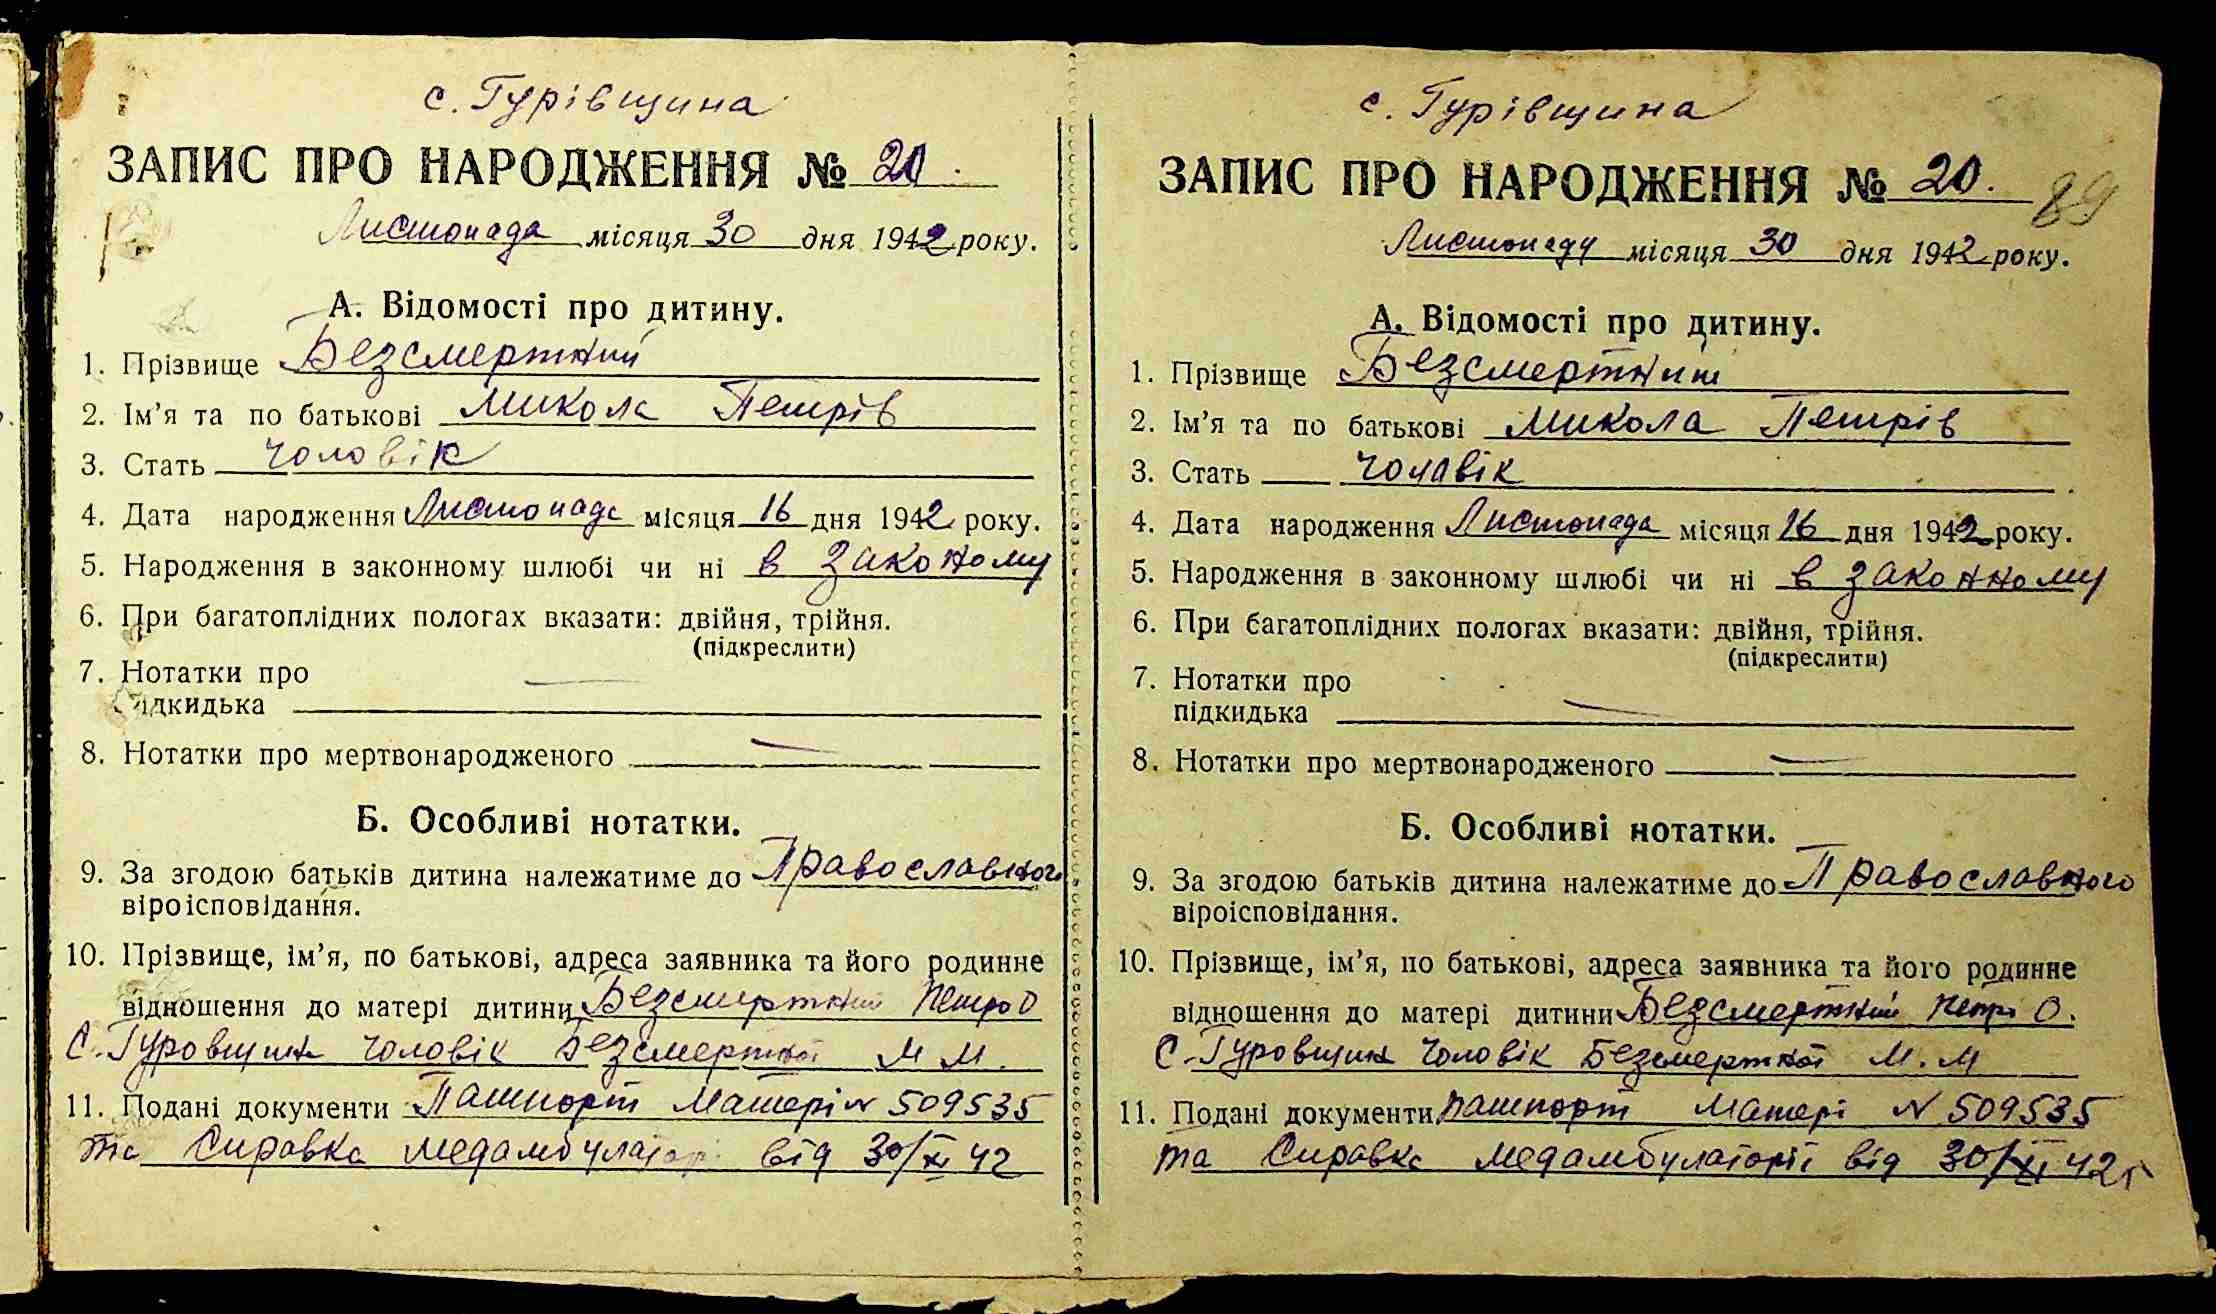 с. Гурівщина
ЗАПИС ПРО НАРОДЖЕННЯ № 20.
Листопада місяця 30 дня 1942 року.
А. Відомості про дитину.
1. Прізвище Безсмертний
2. Ім’я та по батькові Микола Петрів
3. Стать чоловік
4. Дата народження Листопада місяця 16 дня 1942 року.
5. Народження в законному шлюбі чи ні в закономy
6. При багатоплідних пологах вказати: двійня, трійня.
(підкреслити)
7. Нотатки про
підкидька —
8. Нотатки про мертвонародженого —
Б. Особливі нотатки.
9. За згодою батьків дитина належатиме до Православного
віроісповідання.
10. Прізвище, ім’я, по батькові, адреса заявника та його родинне
відношення до матері дитини Безсмертний Петро О
С. Гуровщина чоловік Безсмертної М М.
11. Подані документи Пашпорт Матері № 509535
та Справка медамбулаторі від 30/XI 42
с. Гурівщина
ЗАПИС ПРО НАРОДЖЕННЯ № 20.
89
Листопаду місяця 30 дня 1942 року.
А. Відомості про дитину.
1. Прізвище Безсмертний
2. Ім’я та по батькові Микола Петрів
3. Стать чоловік
4. Дата народження Листопада місяця 16 дня 1942 року.
5. Народження в законному шлюбі чи ні в законному
6. При багатоплідних пологах вказати: двійня, трійня.
(підкреслити)
7. Нотатки про
підкидька —
8. Нотатки про мертвонародженого —
Б. Особливі нотатки.
9. За згодою батьків дитина належатиме до Православного
віроісповідання.
10. Прізвище, ім’я, по батькові, адреса заявника та його родинне
відношення до матері дитини Безсмертний Петр О.
С. Гуровщина чоловік Безсмертної М. М
11. Подані документи пашпорт Матері № 509535
та Справка медамбулаторії від 30/XI 42 г